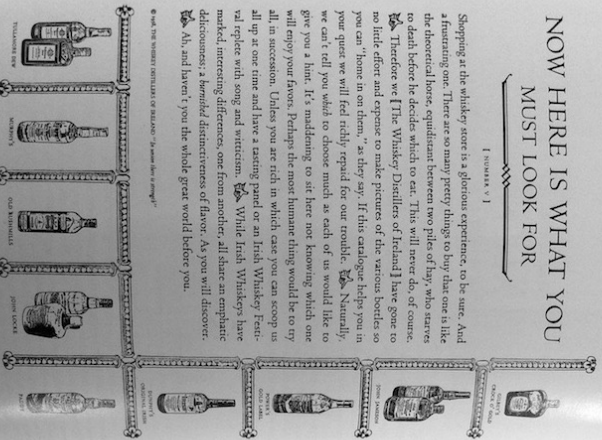 NOW HERE IS WHAT YOU
MUST LOOK FOR
[ NUMBER V ]
Shopping at the whiskey store is a glorious experience, to be sure. And
a frustrating one. There are so many pretty things to buy that one is like
the theoretical horse, equidistant between two piles of hay, who starves
to death before he decides which to eat. This will never do, of course.
Therefore we [The Whiskey Distillers of Ireland] have gone to
no little effort and expense to make pictures of the various bottles so
you can "home in on them," as they say. If this catalogue helps you in
your quest we will feel richly repaid for our trouble. Naturally,
we can't tell you which to choose much as each of us would like to
give you a hint. It's maddening to sit here not knowing which one
will enjoy your favors. Perhaps the most humane thing would be to try
all, in succession. Unless you are rich in which case you can scoop us
all up at one time and have a tasting panel or an Irish Whiskey Festi-
val replete with song and witticism. While Irish Whiskeys have
marked, interesting differences, one from another, all share an emphatic
deliciousness; a burnished distinctiveness of flavor. As you will discover.
Ah, and haven't you the whole great world before you.
© 1958, THE WHISKEY DISTILLERS OF IRELAND "In union there is strength"
TULLAMORE DEW
MURPHY'S
OLD BUSHMILLS
JOHN LOCKE
PADDY
DUNPHY'S
ORIGINAL IRISH
POWER'S
GOLD LABEL
JOHN JAMESON
GILBEY'S
CROCK O' GOLD